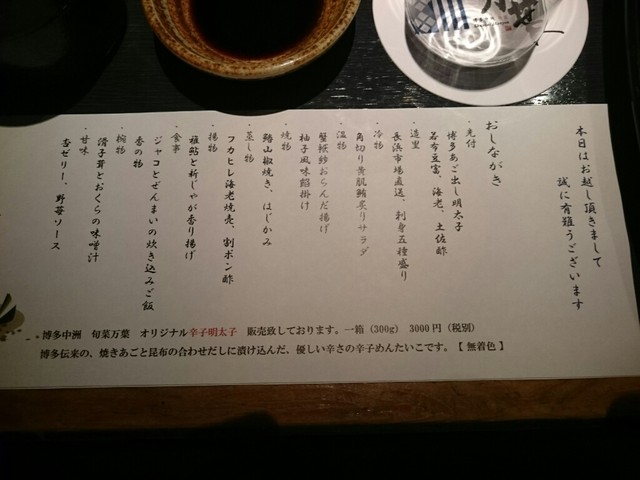 本日はお越し頂きまして
誠に有難うございます
おしながき
・先付
博多あご出し明太子
若布豆富、海老、土佐酢
・造里
長浜市場直送、刺身五種盛り
・冷物
角切り黄肌鮪炙りサラダ
・温物
蟹擬紗おらんだ揚げ
柚子風味餡掛け
・焼物
鰆山椒焼き、はじかみ
・蒸し物
フカヒレ海老焼売、割ポン酢
・揚物
稚鮎と新じゃが香り揚げ
・食事
ジャコとぜんまいの炊き込みご飯
香の物
・椀物
滑子茸とおくらの味噌汁
・甘味
杏ゼリー、野苺ソース
博多中洲 旬菜万葉 オリジナル辛子明太子 販売致しております。一箱（300g） 3000円（税別）
博多伝来の、焼きあごと昆布の合わせだしに漬け込んだ、優しい辛さの辛子めんたいこです。【無着色】